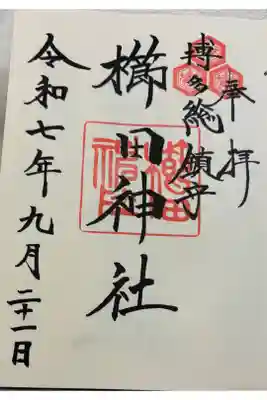 奉拝
博多総鎮守
櫛田神社
令和七年九月二十一日